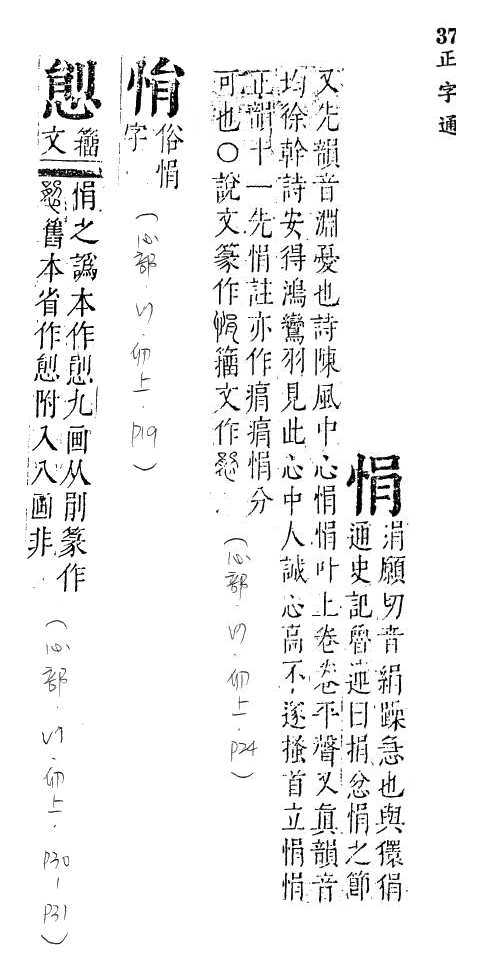 37 正字通
悁
涓願切音絹躁急也與儇狷
通史記魯連曰捐忿悁之節
又先韻音淵憂也詩陳風中心悁悁叶上卷卷平聲又眞韻音
均徐幹詩安得鴻鸞羽見此心中人誠心高不遂搔首立悁悁
正韻十一先悁註亦作痟痟悁分
可也○說文篆作悁籀文作
(心部.卯.仰上.P24)
悁
俗悁
字
(心部.卯.仰上.P19)
籀
文
悁之譌本作九画从剈篆作
舊本省作附入八画非
(心部.卯.仰上.P30-P31)